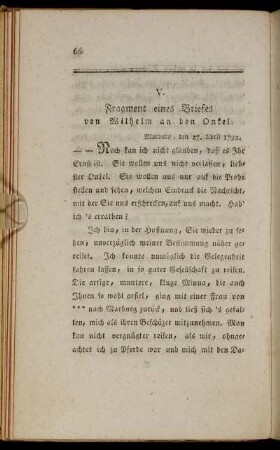 66
V.
Fragment eines Briefes
von Wilhelm an den Onkel.
Marburg, den 27. April 1792.
— — Noch kan ich nicht glauben, daß es Ihr
Ernst ist. Sie wollen uns nicht verlassen, lieb-
ster Onkel. Sie wollen uns nur auf die Probe
stellen und sehen, welchen Eindruck die Nachricht,
mit der Sie uns erschrecken, auf uns macht. Hab'
ich 's errathen?
Ich bin, in der Hofnung, Sie wieder zu se-
hen, unverzüglich meiner Bestimmung näher ge-
reiset. Ich konnte unmöglich die Gelegenheit
fahren lassen, in so guter Gesellschaft zu reisen.
Die artige, muntere, kluge Minna, die auch
Ihnen so wohl gefiel, ging mit einer Frau von
*** nach Marburg zurück, und ließ sich's gefal-
len, mich als ihren Beschüzer mitzunehmen. Man
kan nicht vergnügter reisen, als wir, ohnge-
achtet ich zu Pferde war und mich mit den Da-